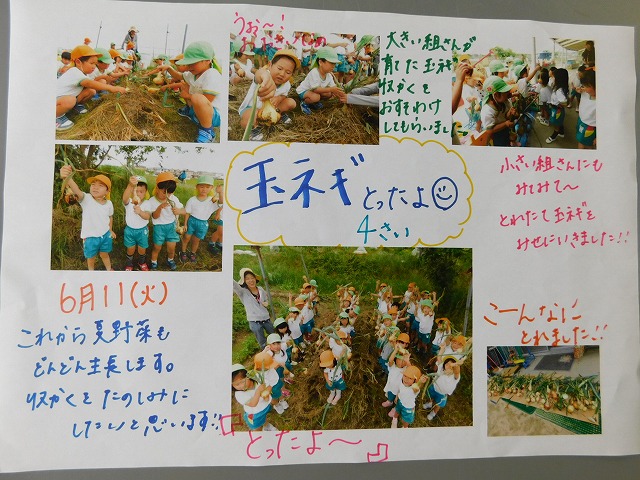 うぉ〜!
大きい組さんが
育てた玉ネギ
収かくを
おすそわけ
してもらいました
玉ネギ とったよ
4さい
小さい組さんにも
みてみて〜
とれたて玉ネギを
みせにいきました!!
6月11(火)
これから夏野菜も
どんどん生長します。
収かくをたのしみに
したいと思います!!
こーんなに
とれました!!
『とったよ〜』